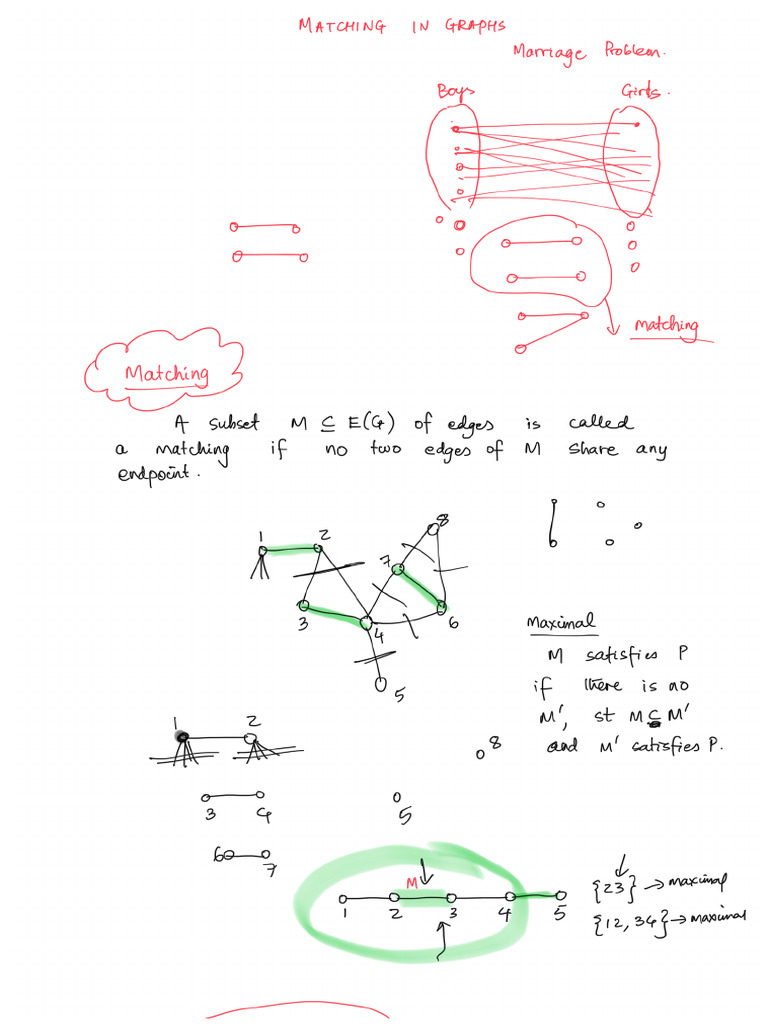 MATCHING IN GRAPHS
Marriage Problem.
Boys
Girls.
Matching
Matching
A subset M ⊆ E(G) of edges is called
a matching if no two edges of M share any
endpoint.
1
2
3
4
5
6
7
8
Maximal
M satisfies P
if there is no
M', st M ⊆ M'
and M' satisfies P.
1 2
8
3 4
5
6 7
M
1 2 3 4 5
{23} → maximal
{12, 34} → maximal